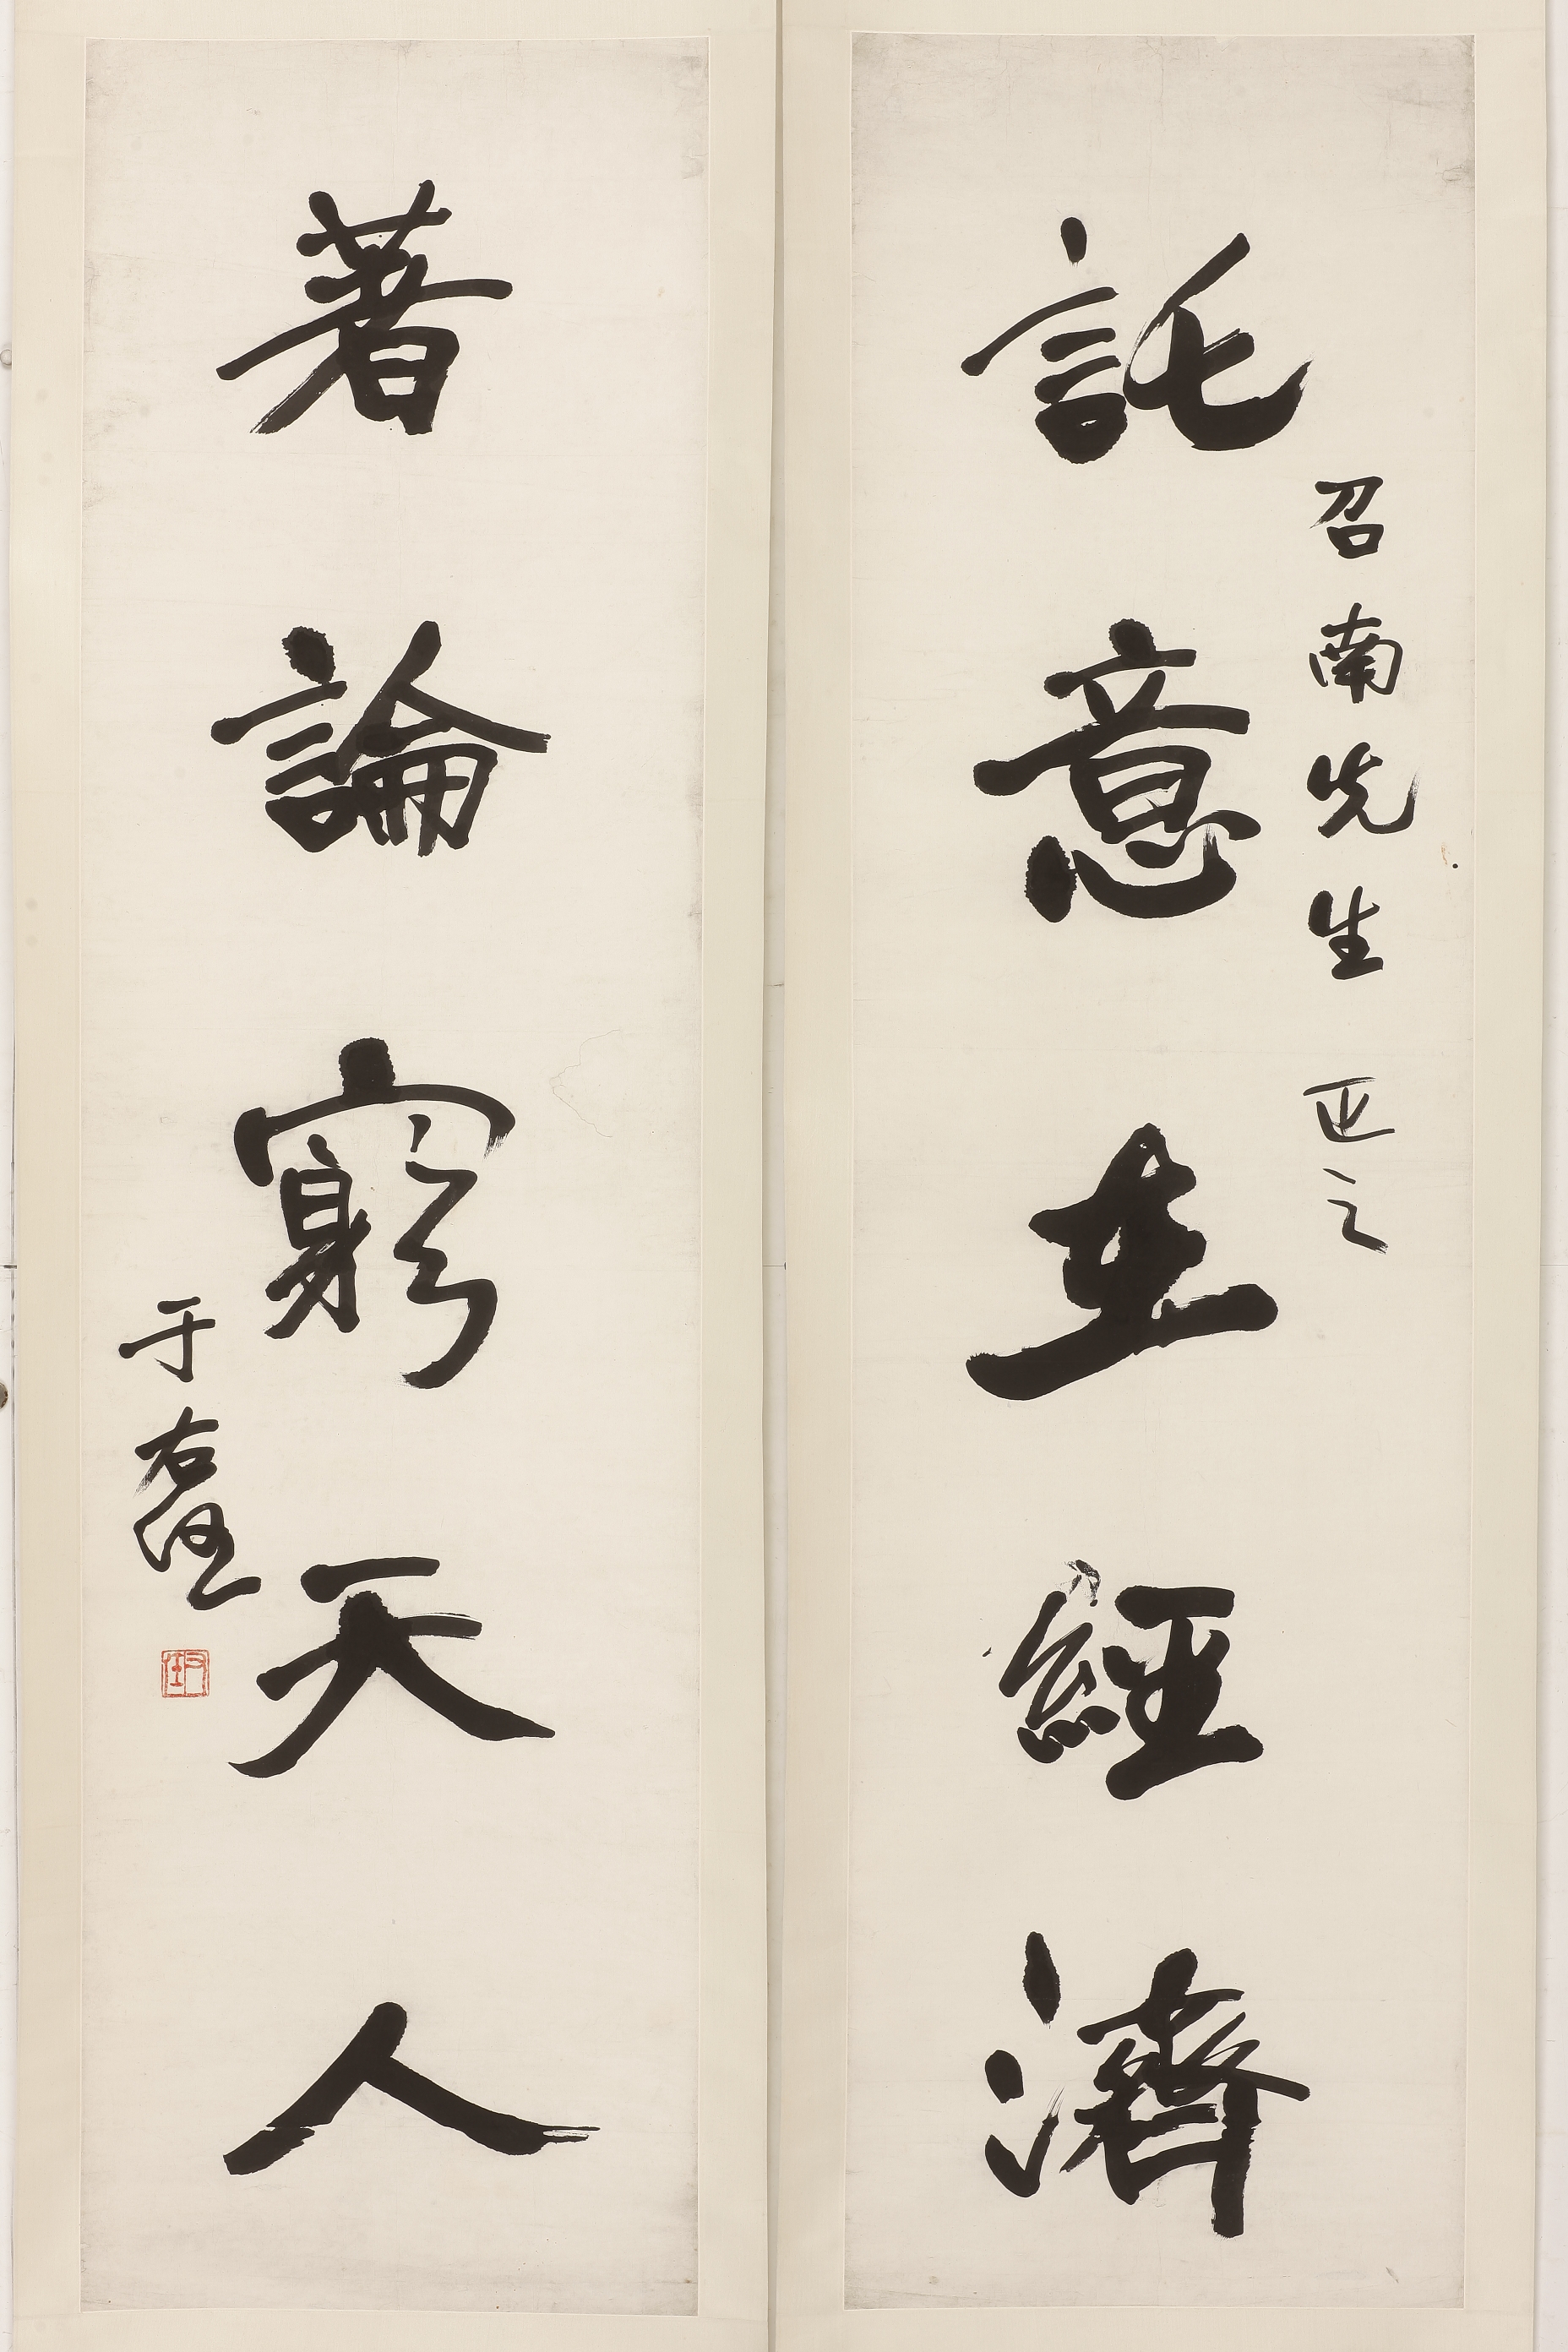 託意在經濟
召南先生 正之
著論窮天人
于右任
右任